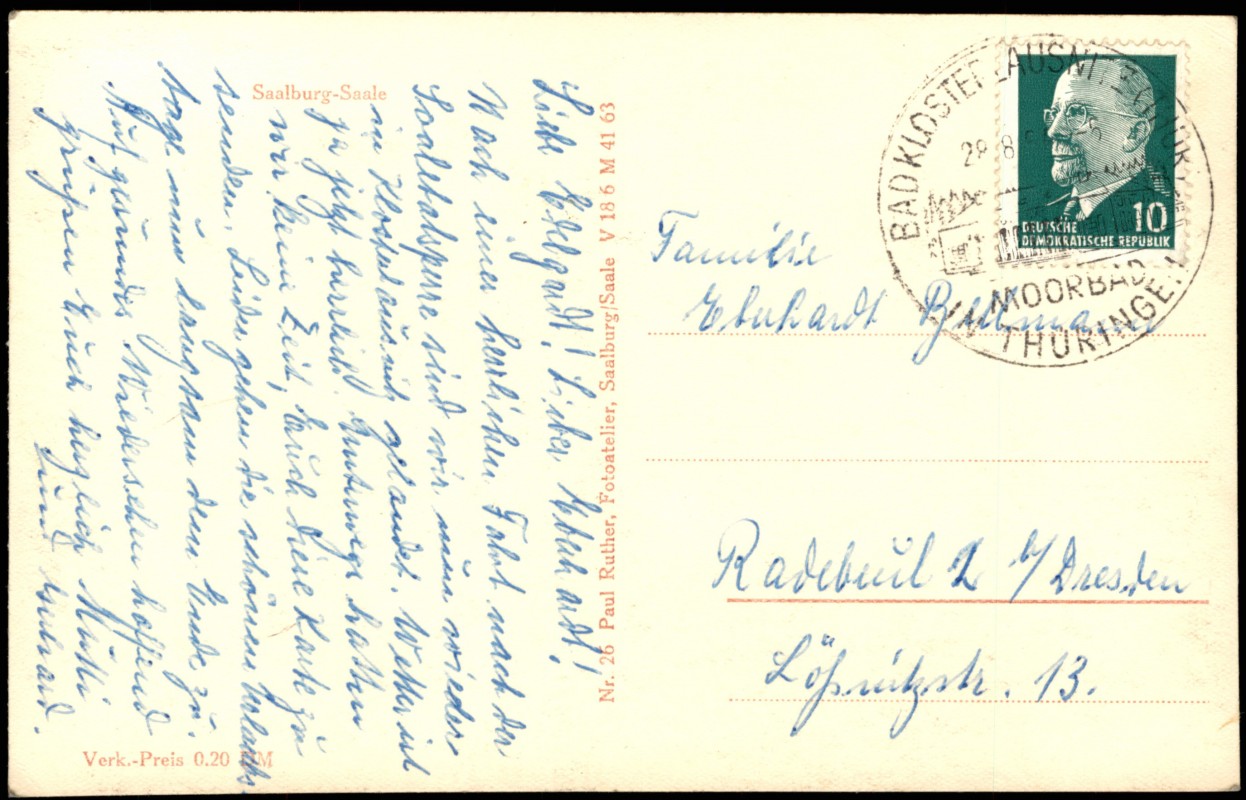 Saalburg-Saale
Liebe Edelgard! Lieber Eberhardt!
Nach einer herrlichen Fahrt nach der
Saaletalsperre sind wir nun wieder
in Klosterlausnitz gelandet. Wetter ist
ja jetzt herrlich. Unterwegs hatten
wir keine Zeit, Euch diese Karte zu
senden. Leider gehen die schönen Urlaubs
tage nun langsam dem Ende zu.
Auf gesundes Wiedersehen hoffend
grüßen Euch herzlich Mutti
und
Verk.-Preis 0.20 DM
Nr. 26 Paul Ruther, Fotoatelier, Saalburg/Saale V 18 6 M 41 63
BAD KLOSTERLAUSNITZ (THÜR)
28.8
MOORBAD
IN THÜRINGEN
10
DEUTSCHE
DEMOKRATISCHE REPUBLIK
Familie
Eberhardt
Radebeul 2 b/Dresden
Lößnitzstr. 13.